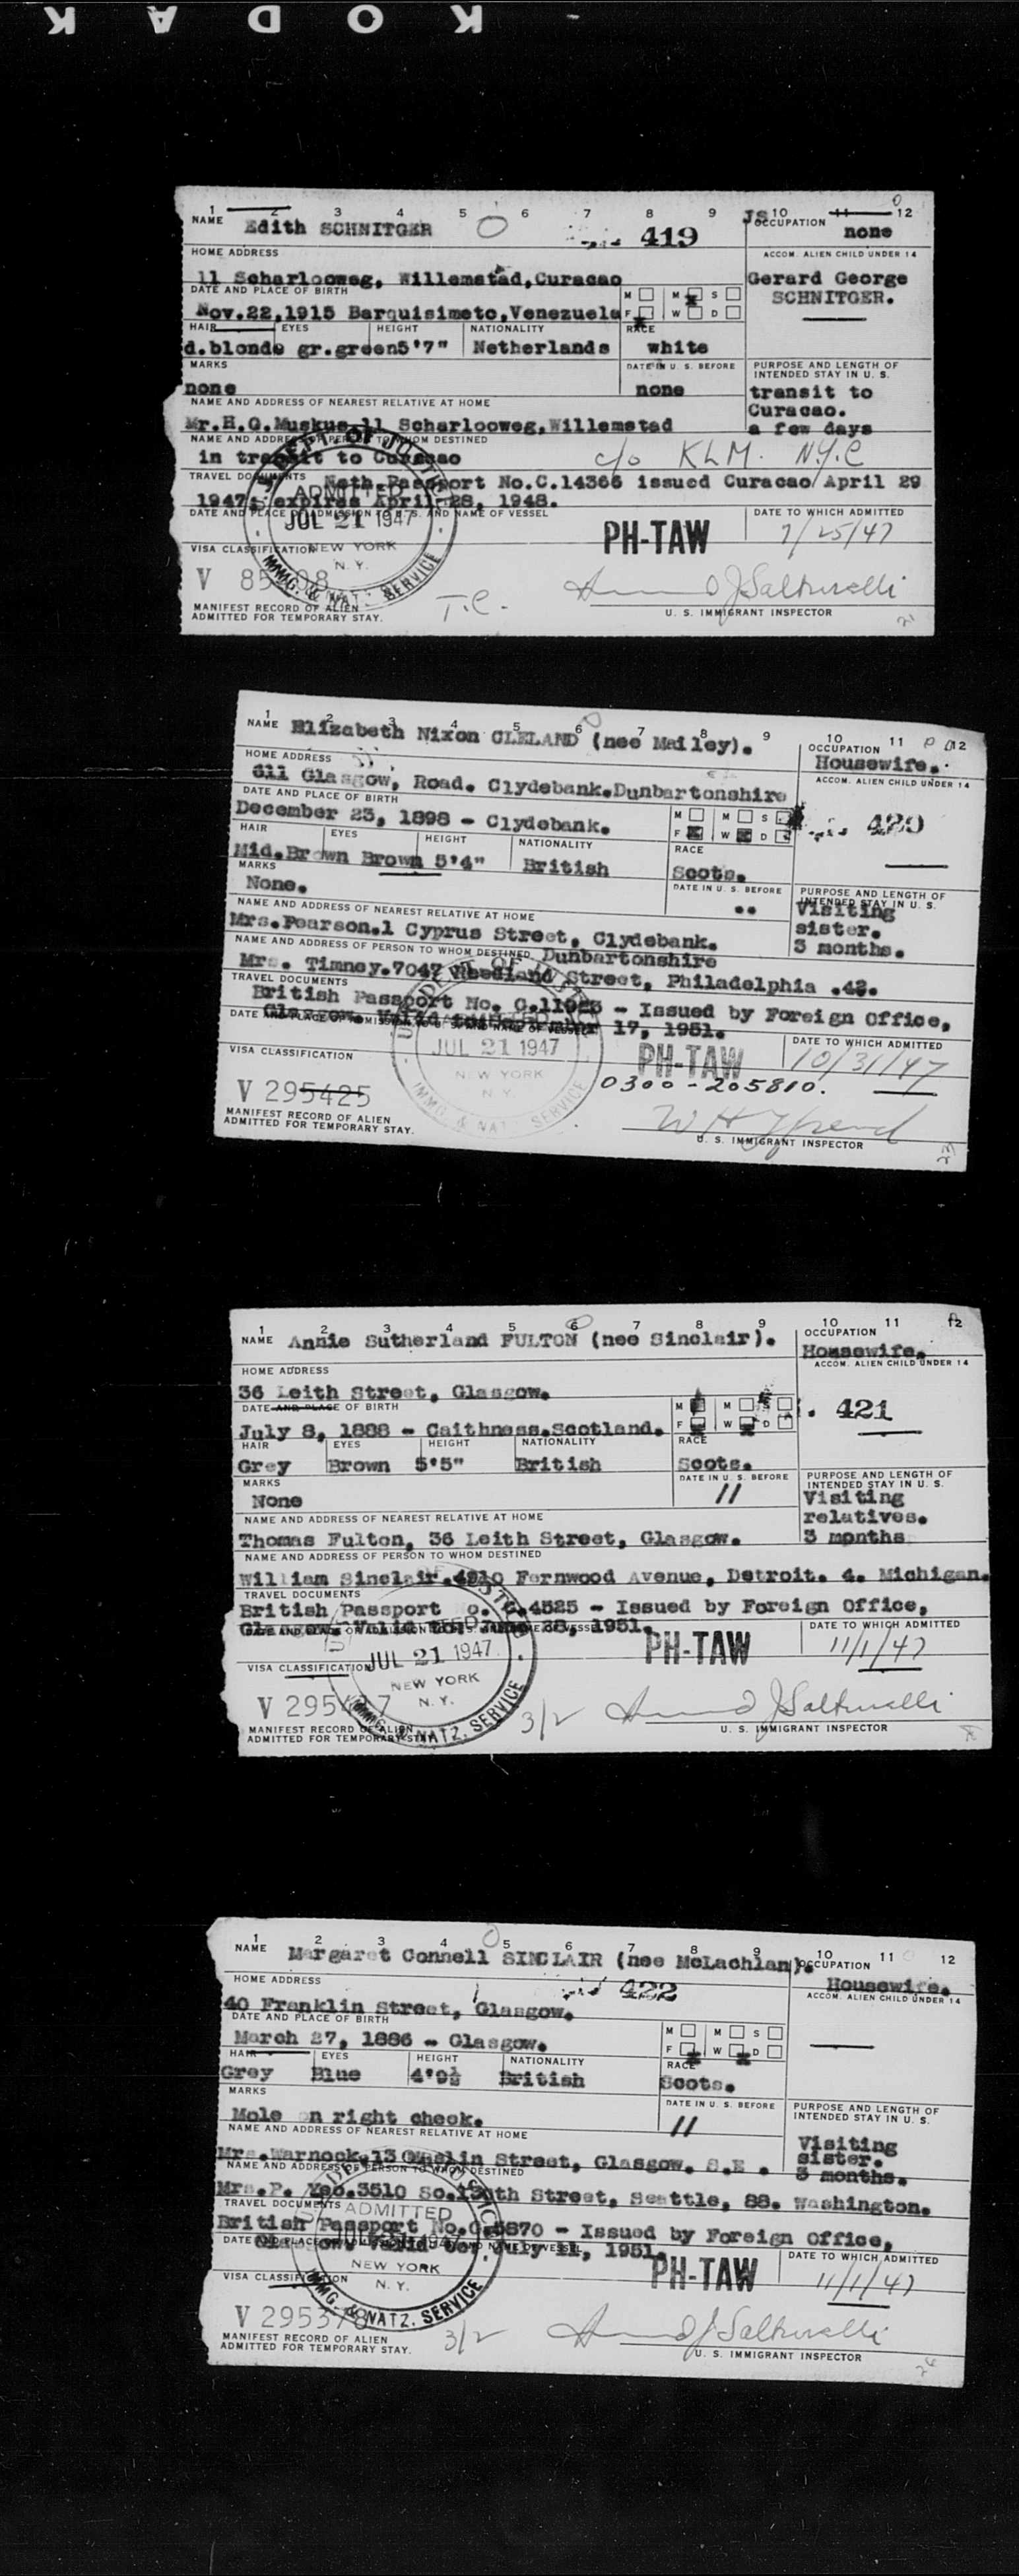 KODAK
1 2 3 4 5 6 7 8 9 10 11 12
NAME Edith SCHNITGER
419
JS
OCCUPATION none
HOME ADDRESS
ACCOM. ALIEN CHILD UNDER 14
11 Scharlooweg, Willemstad,Curacao
Gerard George
SCHNITGER.
DATE AND PLACE OF BIRTH
M M S
Nov.22,1915 Barquisimeto, Venezuela
F W D
HAIR EYES HEIGHT NATIONALITY RACE
d.blonde gr.green 5'7" Netherlands white
MARKS DATE IN U. S. BEFORE
PURPOSE AND LENGTH OF
INTENDED STAY IN U. S.
none none
transit to
Curacao.
a few days
NAME AND ADDRESS OF NEAREST RELATIVE AT HOME
Mr.H.O.Muskus,11 Scharlooweg,Willemstad
NAME AND ADDRESS OF PERSON TO WHOM DESTINED
in transit to Curacao c/o KLM. N.Y.C
TRAVEL DOCUMENTS
Neth.Passport No.C.14366 issued Curacao April 29
1947, expires April 28, 1948.
DATE AND PLACE OF ADMISSION TO U. S. AND NAME OF VESSEL
DATE TO WHICH ADMITTED
ADMITTED
JUL 21 1947
NEW YORK
N. Y.
IMMG. & NATZ. SERVICE
PH-TAW
7/25/47
VISA CLASSIFICATION
V 85
T.C.
MANIFEST RECORD OF ALIEN
ADMITTED FOR TEMPORARY STAY.
U. S. IMMIGRANT INSPECTOR
1 2 3 4 5 6 7 8 9 10 11 12
NAME Elizabeth Nixon CLELAND (nee Mailey).
OCCUPATION
Housewife.
HOME ADDRESS
ACCOM. ALIEN CHILD UNDER 14
611 Glasgow, Road. Clydebank.Dunbartonshire
DATE AND PLACE OF BIRTH
M M S
420
December 23, 1898 - Clydebank.
F W D
HAIR EYES HEIGHT NATIONALITY RACE
Mid.Brown Brown 5'4" British Scots.
MARKS DATE IN U. S. BEFORE
PURPOSE AND LENGTH OF
INTENDED STAY IN U. S.
None.
Visiting
sister.
3 months.
NAME AND ADDRESS OF NEAREST RELATIVE AT HOME
Mrs.Pearson.1 Cyprus Street, Clydebank.
Dunbartonshire
NAME AND ADDRESS OF PERSON TO WHOM DESTINED
Mrs. Timney.7047 Woodland Street, Philadelphia .42.
TRAVEL DOCUMENTS
British Passport No. C.11983 - Issued by Foreign Office,
17, 1951.
DATE AND PLACE OF ADMISSION TO U. S. AND NAME OF VESSEL
DATE TO WHICH ADMITTED
JUL 21 1947
NEW YORK
N. Y.
IMMG. & NATZ. SERVICE
PH-TAW
10/31/47
0300-205810.
VISA CLASSIFICATION
V 295425
MANIFEST RECORD OF ALIEN
ADMITTED FOR TEMPORARY STAY.
U. S. IMMIGRANT INSPECTOR
1 2 3 4 5 6 7 8 9 10 11 12
NAME Annie Sutherland FULTON (nee Sinclair).
OCCUPATION
Housewife.
HOME ADDRESS
ACCOM. ALIEN CHILD UNDER 14
36 Leith Street, Glasgow.
DATE AND PLACE OF BIRTH
M M S
421
July 8, 1888 - Caithness.Scotland.
F W D
HAIR EYES HEIGHT NATIONALITY RACE
Grey Brown 5'5" British Scots.
MARKS DATE IN U. S. BEFORE
PURPOSE AND LENGTH OF
INTENDED STAY IN U. S.
None //
Visiting
relatives.
3 months
NAME AND ADDRESS OF NEAREST RELATIVE AT HOME
Thomas Fulton, 36 Leith Street, Glasgow.
NAME AND ADDRESS OF PERSON TO WHOM DESTINED
William Sinclair.4910 Fernwood Avenue, Detroit. 4. Michigan.
TRAVEL DOCUMENTS
British Passport No. C.4525 - Issued by Foreign Office,
1951.
DATE TO WHICH ADMITTED
JUL 21 1947
NEW YORK
N. Y.
IMMG. & NATZ. SERVICE
PH-TAW
11/1/47
VISA CLASSIFICATION
V 295
3/2
MANIFEST RECORD OF ALIEN
ADMITTED FOR TEMPORARY STAY
U. S. IMMIGRANT INSPECTOR
1 2 3 4 5 6 7 8 9 10 11 12
NAME Margaret Connell SINCLAIR (nee McLachlan).
OCCUPATION
Housewife.
HOME ADDRESS
422
ACCOM. ALIEN CHILD UNDER 14
40 Franklin Street, Glasgow.
DATE AND PLACE OF BIRTH
M M S
March 27, 1886 - Glasgow.
F W D
HAIR EYES HEIGHT NATIONALITY RACE
Grey Blue 4'9½ British Scots.
MARKS DATE IN U. S. BEFORE
PURPOSE AND LENGTH OF
INTENDED STAY IN U. S.
Mole on right cheek. //
Visiting
sister.
3 months.
NAME AND ADDRESS OF NEAREST RELATIVE AT HOME
Mrs.Warnock,13 Street, Glasgow. S.E .
NAME AND ADDRESS OF PERSON TO WHOM DESTINED
Mrs.P. Yeo.3510 So.130th Street, Seattle, 88. Washington.
TRAVEL DOCUMENTS
British Passport No.C.5870 - Issued by Foreign Office,
Valid to July 11, 1951.
DATE TO WHICH ADMITTED
ADMITTED
NEW YORK
N. Y.
IMMG. & NATZ. SERVICE
PH-TAW
11/1/47
VISA CLASSIFICATION
V 295378
3/2
MANIFEST RECORD OF ALIEN
ADMITTED FOR TEMPORARY STAY.
U. S. IMMIGRANT INSPECTOR